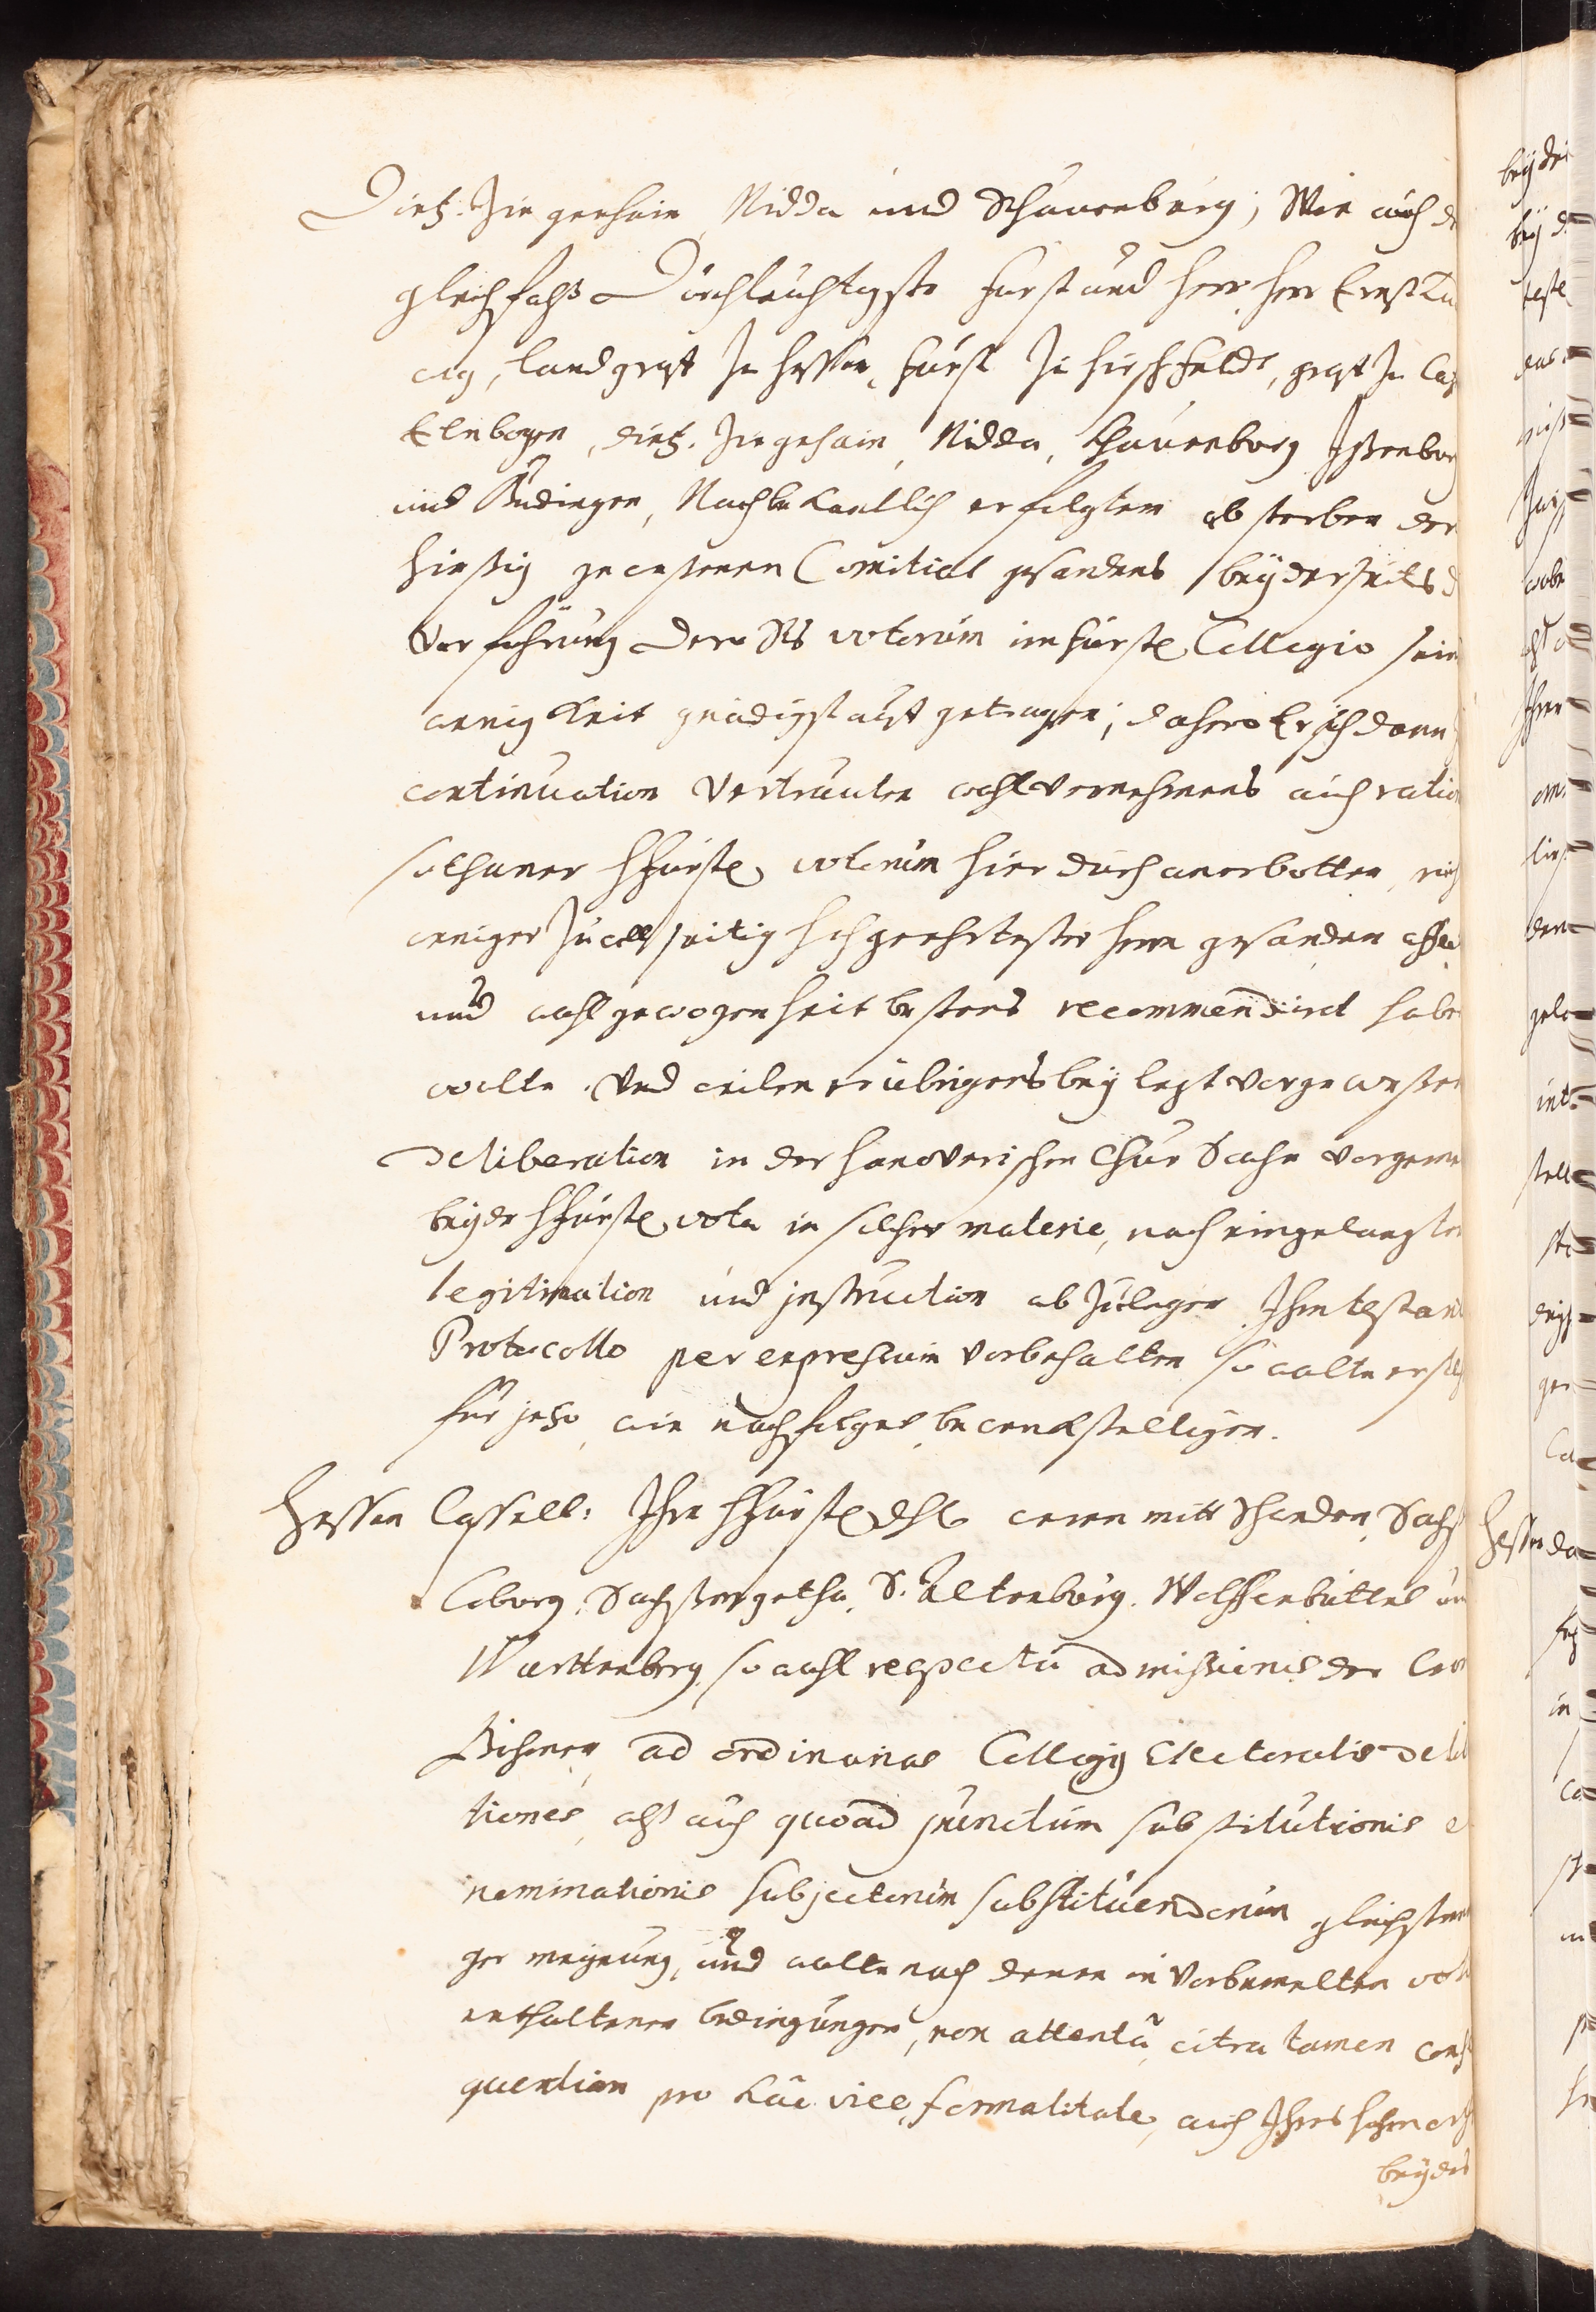 Dietz. Ziegenhain, Nidda und Schauenburg; Wie auch d
gleichfalß Durchleuchtigste Fürst und Herr, Herr Ernst Lu
wig, Landgraf zu Hessen, Fürst zu Hirschfeldt, graf zu Ca
Elnbogen, Dietz. Ziegehain, Nidda, Schauenborg Issenbor
und Büdingen, Nach bekantlich erfolgtem absterben der
hiesig gewesenen Comitial gesandens beyderseits d
Verführung dero Sts votorum im fürstl. Collegio sein
wenigkeit gnädigst auf getragen; dahero Er sich dann
continuation Vertrauten wohlvernehmens auch ratio
sothaner hfürstl. votorum hierdurch anerbotten,
weniger zu allseitig hochgeehrtester herrn gesanden affec
und wohlgewogenheit bestens recommendirt habe
wolte. Und weilen er übrigens bey letzt vorgewesten
deliberation in der hanoverischen Chur Sache
beyde hfürstl. vota in solcher materie, nach eingelangter
legitimation und instruction abzulegen Ihm
Protocollo per expressum vorbehalten so wolte er
für jetzo, wie nachfolget, bewerckstelligen.
Hessen Cassell: Ihre hfürstl. dhl. weren mitt Schweden, Sachs
Coborg, Sachßen gotha, S. Altenburg. Wolffenbüttel un
Württenberg, sowohl respectu admissionis der Cron
Böhmen, ad ordinarias Collegij Electoralis deli
tiones, alß auch quoad punctum substitutionis e
nominationis subjectorum substituendorum gleichstim
ger meynung, und wolte nach denen in vorbemelten vot
enthaltenen bedingungen, non attentâ, citra tamen cons
quentiam pro hac vice, formalitate, auch Ihres hohen orth
beydes
beyde
bey d
teste
das
Ihrer
den
Hessen da